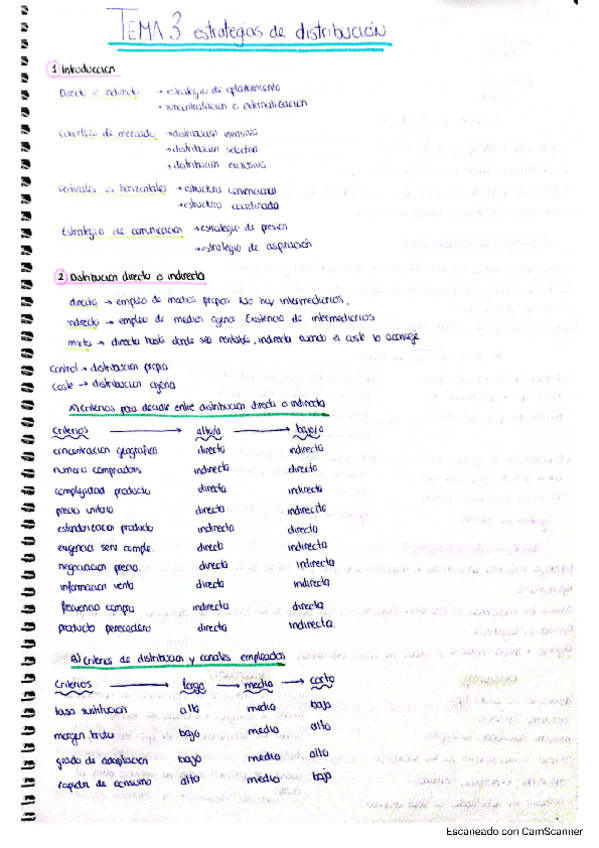 TEMA 3 estrategias de distribución
1 Introducción
Directo o indirecto → estrategia de aplazamiento
→ subcontratación o externalización
Cobertura de mercado → distribucion extensiva
→ distribucion selectiva
→ distribucion exclusiva
verticales vs horizontales → estructura convencional
→ estructura coordinada
Estrategia de comunicacion → estrategia de presion
→ estrategia de aspiración
2 Distribucion directa o indirecta
directa → empleo de medios propios No hay intermediarios,
indirecta → empleo de medios ajenos Existencia de intermediarios
mixta → directa hasta donde sea rentable, indirecta cuando el coste lo aconseje
control → distribucion propia
coste → distribucion ajena
A) criterios para decidir entre distribucion directa o indirecta
criterios → alto/a → bajo/a
concentracion geografica directa indirecta
numero compradores indirecta directa
complejidad producto directa indirecta
precio unitario directa indirecta
estandarizacion producto indirecta directa
exigencia serv comple. directa indirecta
negociacion precio directa indirecta
informacion venta directa indirecta
frecuencia compra indirecta directa
producto perecedero directa indirecta
B) criterios de distribucion y canales empleados
criterios → largo → medio → corto
tasa sustitucion alta media baja
margen bruto bajo medio alto
grado de adaptacion bajo medio alto
rapidez de consumo alto medio bajo
Escaneado con CamScanner